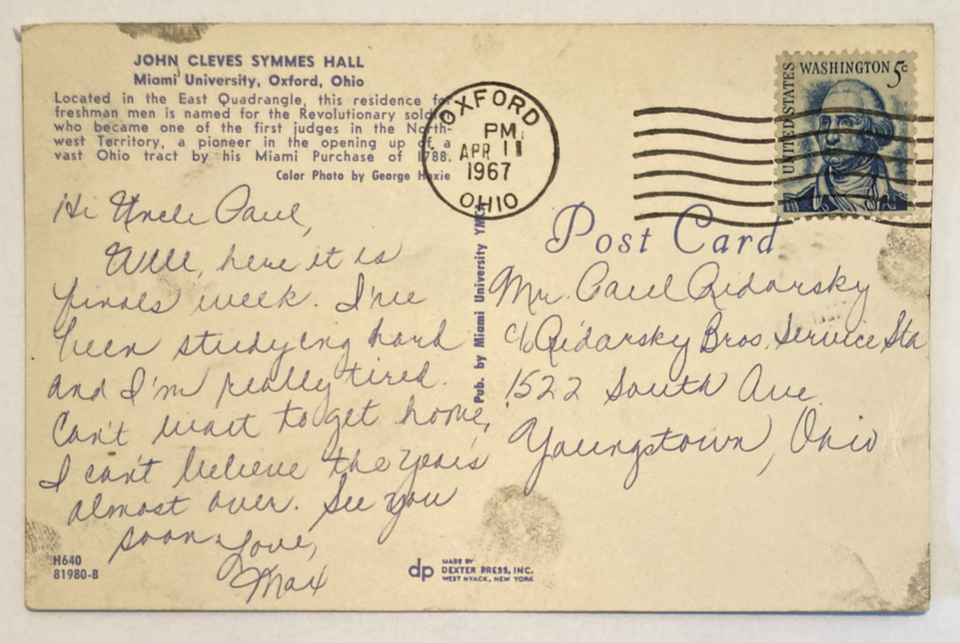 JOHN CLEVES SYMMES HALL
Miami University, Oxford, Ohio
Located in the East Quadrangle, this residence for
freshman men is named for the Revolutionary soldier
who became one of the first judges in the North-
west Territory, a pioneer in the opening up of a
vast Ohio tract by his Miami Purchase of 1788.
Color Photo by George Hoxie
Hi Uncle Paul,
Well, here it is
finals week. I've
been studying hard
and I'm really tired.
Can't wait to get home,
I can't believe the years
almost over. See you
soon. Love,
Max
H640
81980-B
Pub. by Miami University YMCA
dp
MADE BY
DEXTER PRESS, INC.
WEST NYACK, NEW YORK
OXFORD
PM
APR 11
1967
OHIO
UNITED STATES
WASHINGTON 5c
Post Card
Mr. Paul Ridarsky
c/o Ridarsky Bros. Service Sta
1522 South Ave.
Youngstown, Ohio